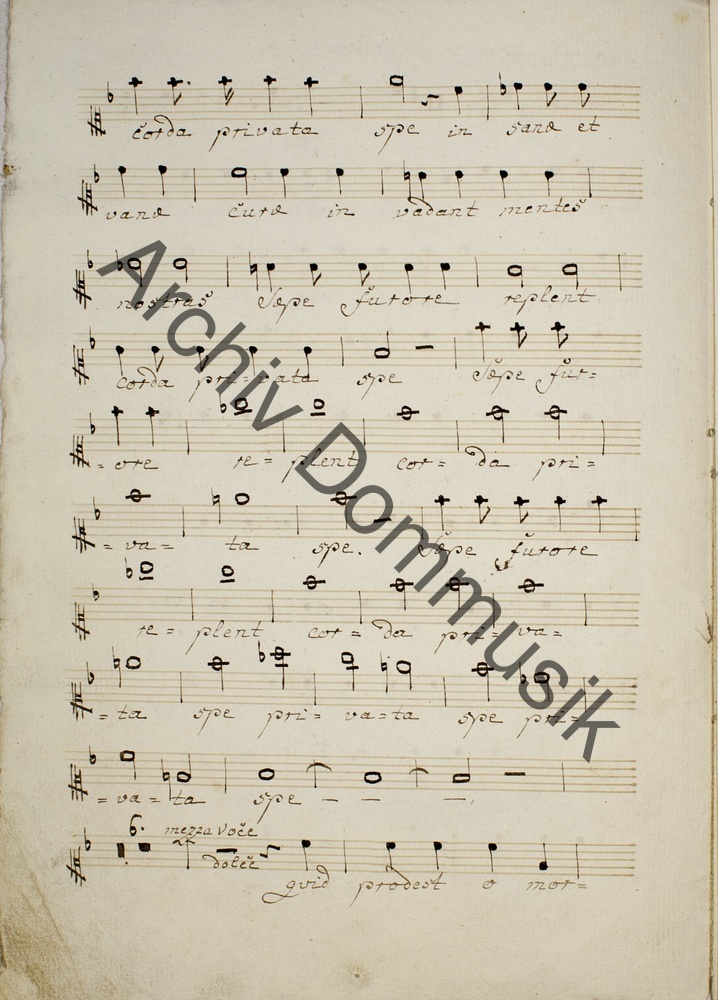 corda privata spe in sanæ et
vanæ curæ in vadant mentes
nostras Sæpe furore replent
corda pri=vata spe Sæpe fur=
=ore re=plent cor=da pri=
=va=ta spe. Sæpe furore
re=plent cor=da pri=va=
=ta spe pri=va=ta spe pri=
=va=ta spe — — —.
6. mezza voce
dolce
quid prodest o mor=
Archiv Dommusik